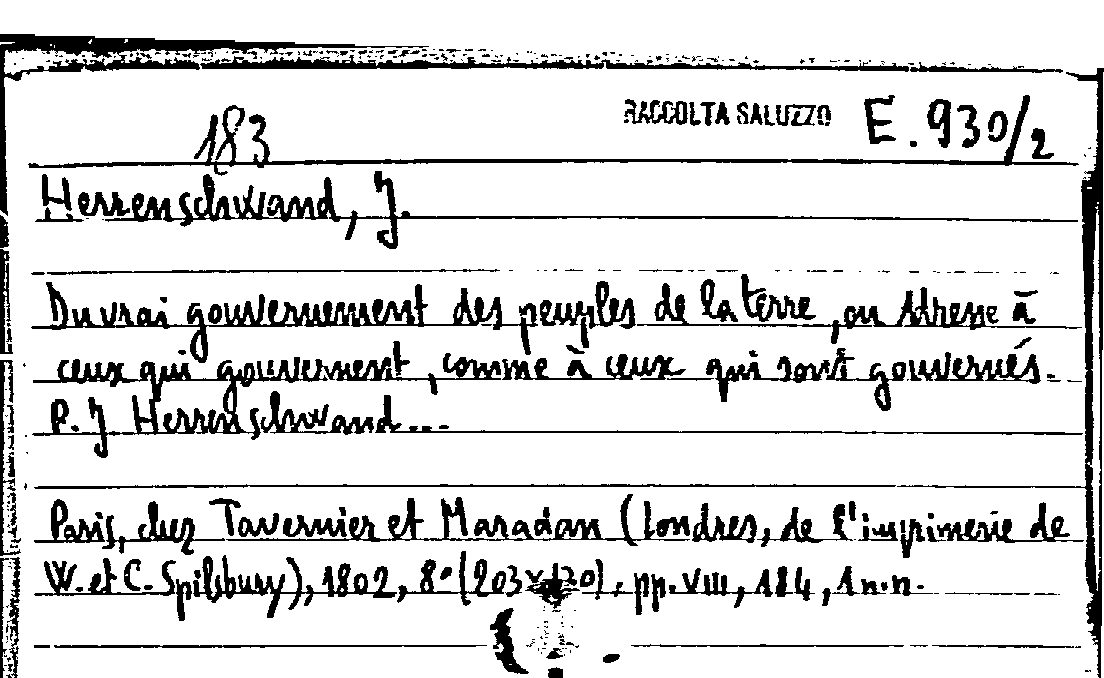 RACCOLTA SALUZZO E. 930/2
183
Herrenschwand, J.
Du vrai gouvernement des peuples de la terre, ou Adresse à
ceux qui gouvernent, comme à ceux qui sont gouvernés.
P. J Herrenschwand...
Paris, chez Tavernier et Maradan (Londres, de l'imprimerie de
W. et C. Spilsbury), 1802, 8° (203x120), pp. VIII, 184, 1 n.n.